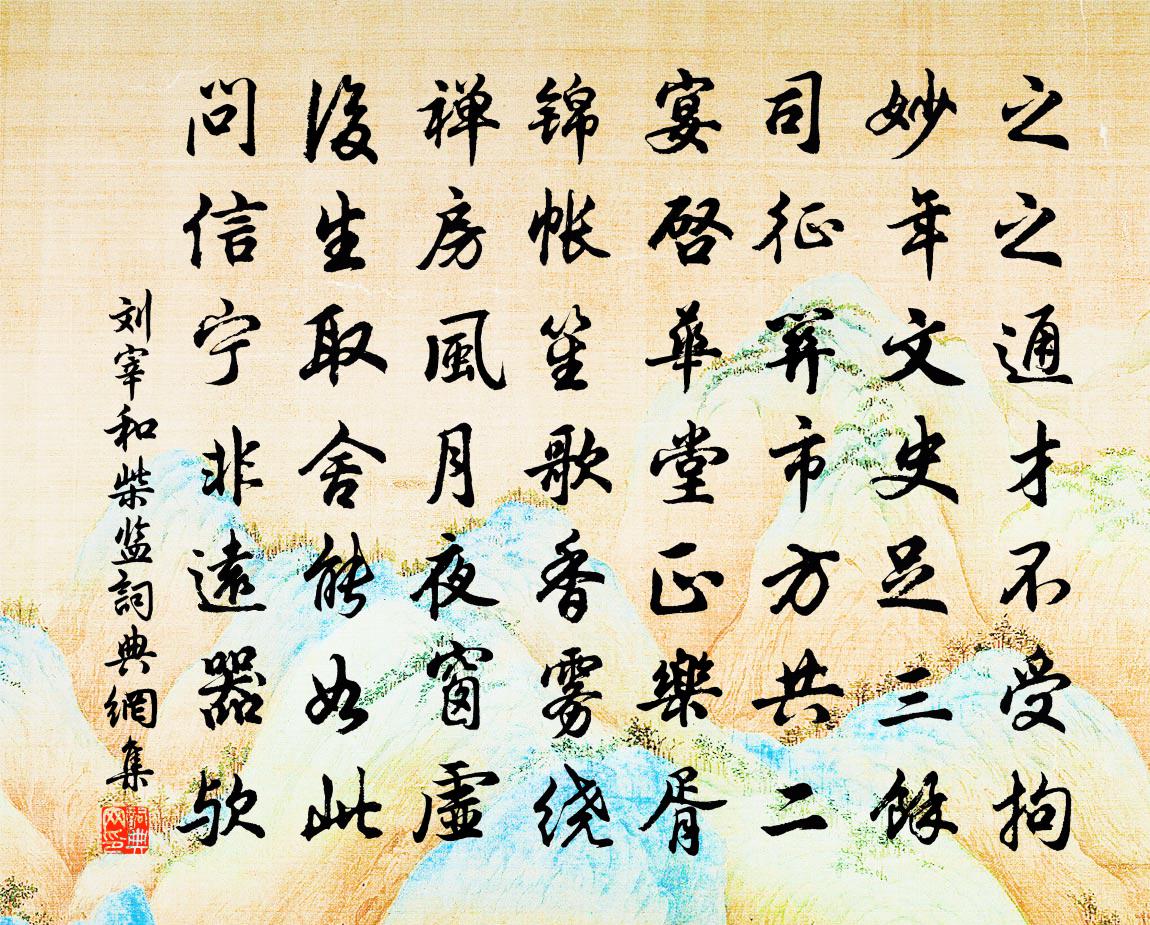 之之通才不受拘
妙年文史足三餘
司征市方共二
宴啓華堂正樂胥
锦帐笙歌香雾绕
禅房風月夜窗虛
後生取舍能如此
问信宁非遠器欤
刘宰和柴监詞典網集
詞典网印